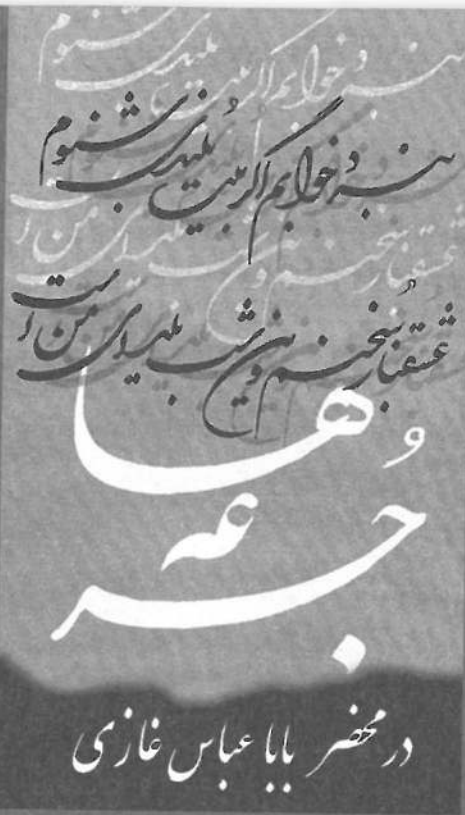 نبرد خوابم اگر بیت بلندی شنوم
عشقباز سُخنم وین شب یلدای من است
جُرعه ها
در محضر بابا عباس غازی